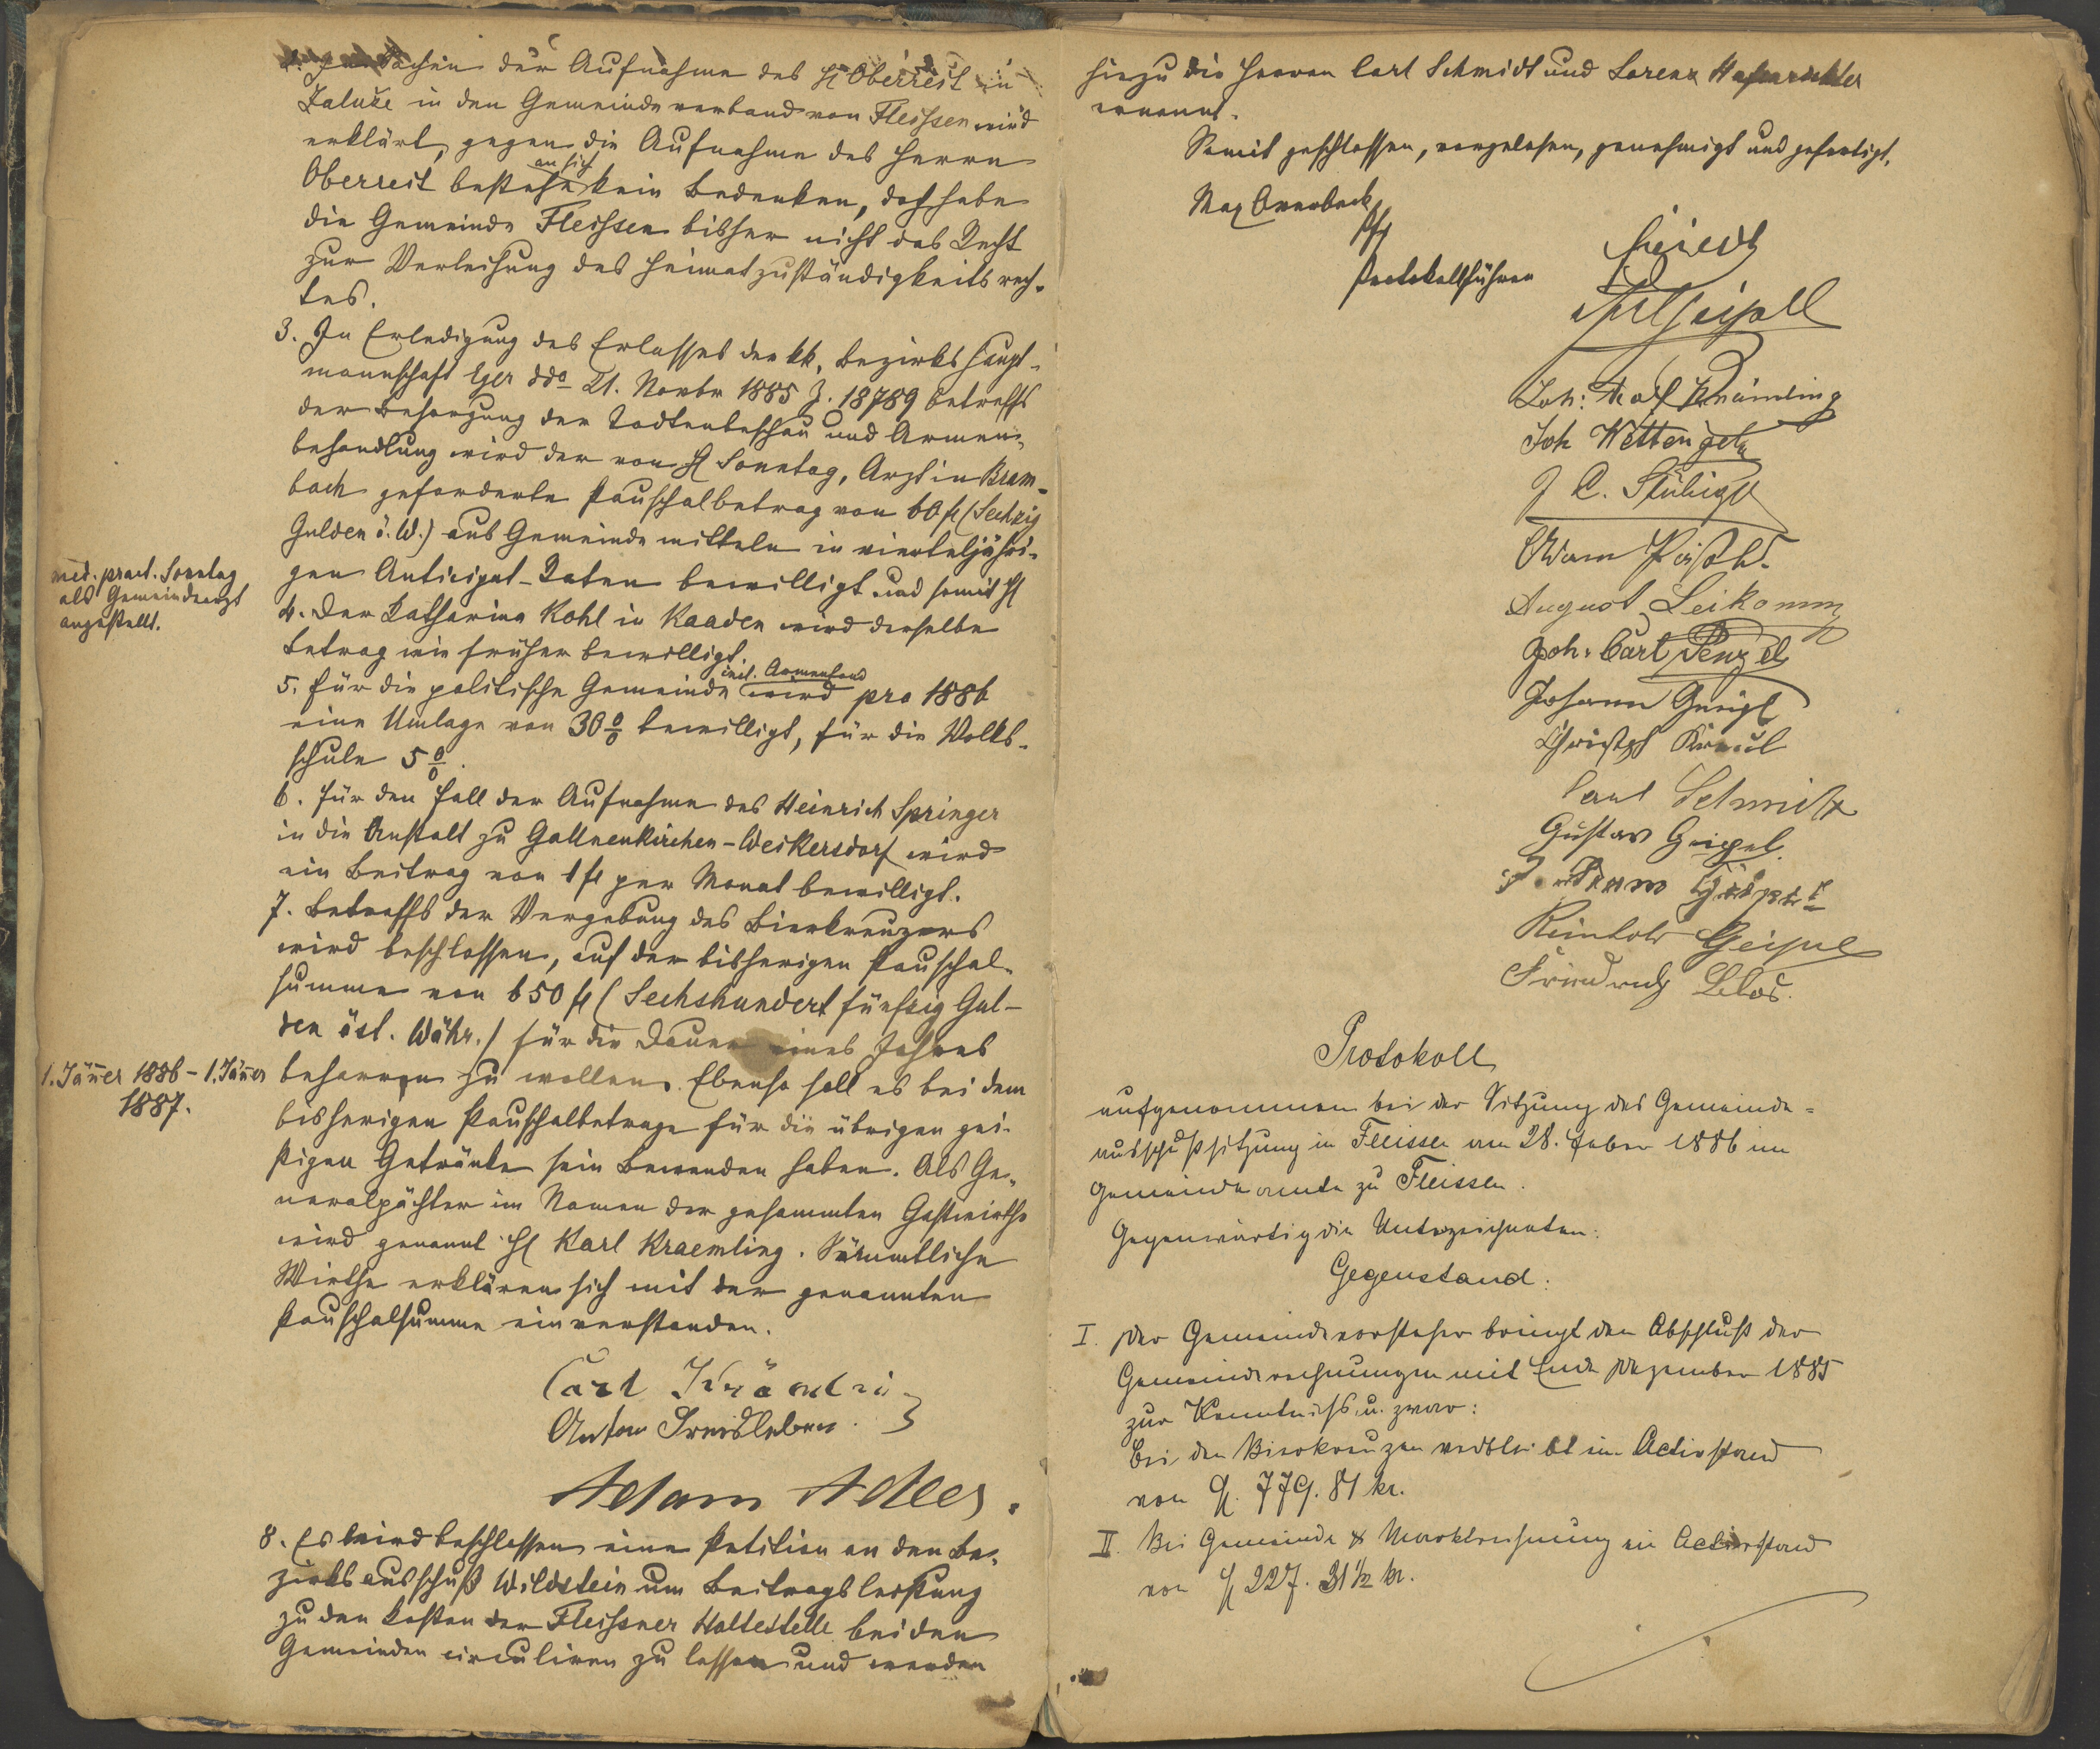 2. In Sachen der Aufnahme des H Oberreit in
Zaluže in den Gemeindeverband von Fleissen wird
erklärt, gegen die Aufnahme des Herrn
an sich
Oberreit bestehe kein Bedenken, doch habe
die Gemeinde Fleissen bisher nicht das Recht
zur Verleihung des Heimatzuständigkeitsrech-
tes.
3. In Erledigung des Erlasses der kk. Bezirkshaupt-
mannschaft Eger ddo 21. Novbr 1885 Z. 18789 betreffs
der Besorgung der Todtenbeschau und Armen-
behandlung wird der von H Sonntag, Arzt in Bram-
bach geforderte Pauschalbetrag von 60 fl (Sechzig
Gulden ö. W.) aus Gemeindemitteln in vierteljähri-
gen Anticipat-Raten bewilligt und somit H
med. pract. Sonntag
als Gemeindearzt
angestellt.
4. Der Katharina Kohl in Kaaden wird derselbe
Betrag wie früher bewilligt.
incl. Armenfond
5. Für die politische Gemeinde wird pro 1886
eine Umlage von 30 % bewilligt, für die Volks-
schule 5 %.
6. Für den Fall der Aufnahme des Heinrich Springer
in die Anstalt zu Gallneukirchen-Weikersdorf wird
ein Beitrag von 1 fl per Monat bewilligt.
7. Betreffs der Vergebung des Bierkreuzers
wird beschlossen, auf der bisherigen Pauschal-
summe von 650 fl (Sechshundert fünfzig Gul-
den öst. Währ.) für die Dauer eines Jahres
1. Jänner 1886 - 1. Jänner
1887.
beharren zu wollen. Ebenso soll es bei dem
bisherigen Pauschalbetrage für die übrigen gei-
stigen Getränke sein Bewenden haben. Als Ge-
neralpächter im Namen der gesammten Gastwirthe
wird genannt H Karl Kraemling. Sämmtliche
Wirthe erklären sich mit der genannten
Pauschalsumme einverstanden.
Carl Krämling
Anton
Adam Adler.
8. Es wird beschlossen eine Petition an den Be-
zirksausschuß Wildstein um Beitragsleistung
zu den Kosten der Fleissner Haltestelle bei den
Gemeinden circuliren zu lassen und werden
hiezu die Herren Carl Schmidt und Lorenz Hafenrichter
ernannt.
Somit geschlossen, vorgelesen, genehmigt und gefertigt.
Max Overbeck
Pfr
Protokollführer
Geipell
Joh: Krämling
Joh Wettengel
J C. Stübiger
Adam
August Leikomm
Joh. Carl Penzel
Johann Geigl
Christof
Carl Schmidt
Gustav Geipel.
Adam Geipel
Reinhold Geipel
Friedrich
Protokoll
aufgenommen bei der Sitzung des Gemeinde=
ausschußsitzung in Fleissen am 28. Feber 1886 im
Gemeindeamte zu Fleissen.
Gegenwärtig die Unterzeichneten.
Gegenstand:
I. Der Gemeindevorsteher bringt den Abschluß der
Gemeinderechnungen mit Ende Dezember 1885
zur Kenntniß u. zwar:
Bei den Bierkreuzer verbleibt im Activstand
von fl. 779. 81 kr.
II. Bei Gemeinde & Marktrechnung ein Activstand
von fl 227. 31 1/2 kr.